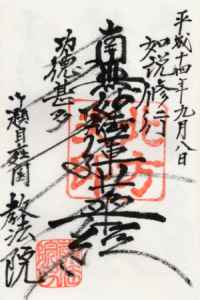 平成十四年九月八日
如説修行
南無妙法蓮華経
功徳甚多
教法院